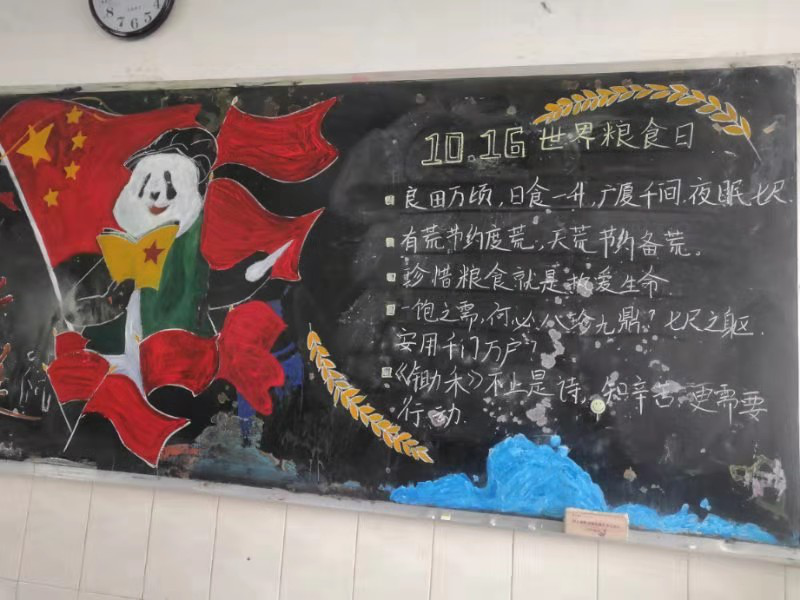 10.16 世界粮食日
良田万顷,日食一升,广厦千间.夜眠七尺.
有荒节约度荒,无荒节约备荒。
珍惜粮食就是救爱生命.
一饱之需,何必八珍九鼎?七尺之躯.
安用千门万户?
《锄禾》不止是诗,知辛苦.更需要
行动.
8 7 6 5 4